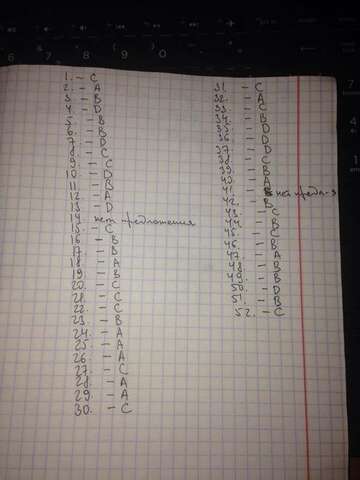 6 7 8 9 0
1. - C
2. - A
3. - B
4. - D
5. - B
6. - B
7. - D
8. - C
9. - C
10. - D
11. - B
12. - A
13. - D
14. нет предложения
15. - C
16. - B
17. - B
18. - A
19. - B
20. - C
21. - C
22. - C
23. - B
24. - A
25. - A
26. - A
27. - C
28. - A
29. - A
30. - C
31. - C
32. - A
33. - C
34. - B
35. - D
36. - D
37. - D
38. - C
39. - B
40. - A
41. - нет предл-я
42. - B
43. - C
44. - B
45. - C
46. - B
47. - A
48. - B
49. - B
50. - D
51. - B
52. - C